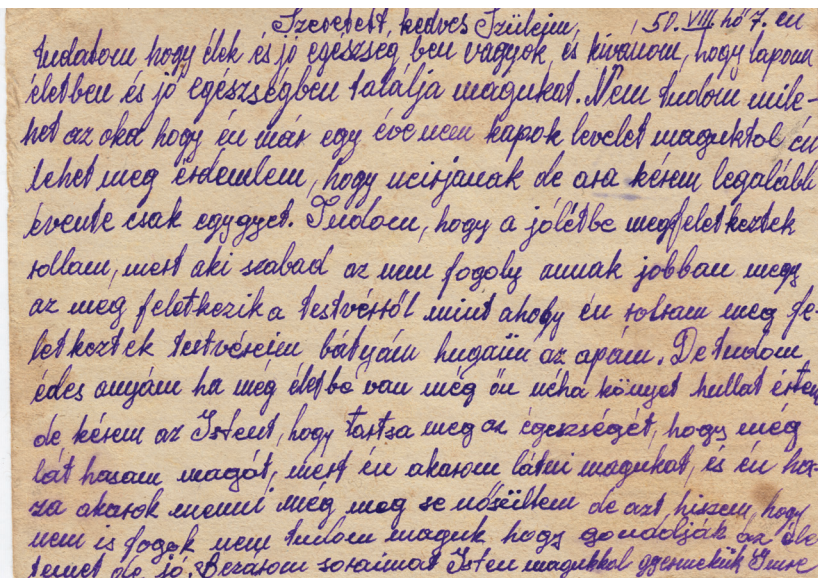 Szeretett, kedves Szüleim, 50. VIII. hó 7. én
tudatom hogy élek és jó egészség ben vagyok, és kivanom, hogy lapom
életben és jó egészségben találja magukat. Nem tudom mile-
het az oka hogy én már egy éve nem kapok levelet maguktol én
lehet meg érdemlem, hogy neirjanak de ara kérem legalább
évente csak egygyet. Tudom, hogy a jólétbe megfeletkeztek
rollam, mert aki szabad az nem fogoly annak jobban megy
az meg feletkezik a testvéstől mint ahogy én rolam meg fe-
letkeztek testvéreim bátyám hugaim az apám. De tudom
édes anyám ha még életbe van még ön néha könyet hullat értem
de kérem az Istent, hogy tartsa meg az egészségét, hogy még
lát hasam magát, mert én akarom látni magukat, és én ha-
za akarok menni még meg se nősültem de azt, hiszem, hogy
nem is fogok nem tudom maguk hogy gondolják az éle
temet de jó. Bezárom soraimat Isten magukkal gyermekük Imre